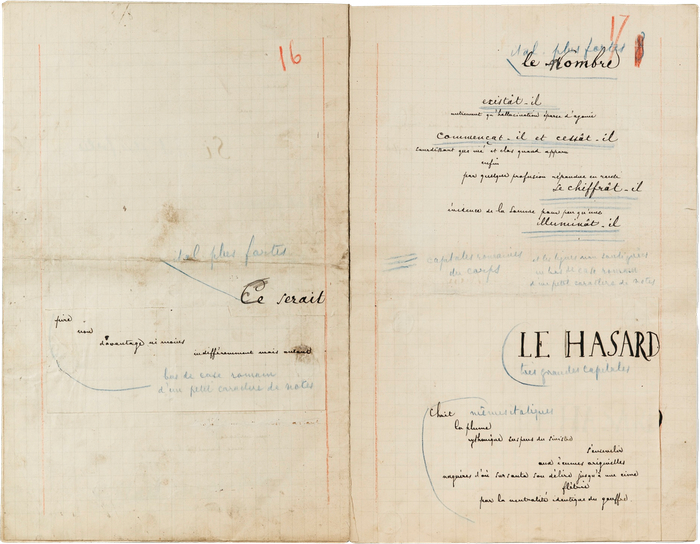 16
ital. plus fortes
Ce serait
pire
non
davantage ni moins
indifféremment mais autant
bas de casse romain
d'un petit caractère de notes
17
ital. plus fortes
le nombre
existât-il
autrement qu'hallucination éparse d'agonie
commençât-il et cessât-il
sourdant que nié et clos quand apparu
enfin
par quelque profusion répandue en rareté
se chiffrât-il
évidence de la somme pour peu qu'une
illuminât-il
capitales romaines
du corps
et les lignes sous
en bas de casse romain
d'un petit caractère de notes
LE HASARD
très grandes capitales
Choit
mêmes italiques
la plume
rythmique suspens du sinistre
s'ensevelir
aux écumes originelles
naguères d'où sursauta son délire jusqu'à une cime
flétrie
par la neutralité identique du gouffre